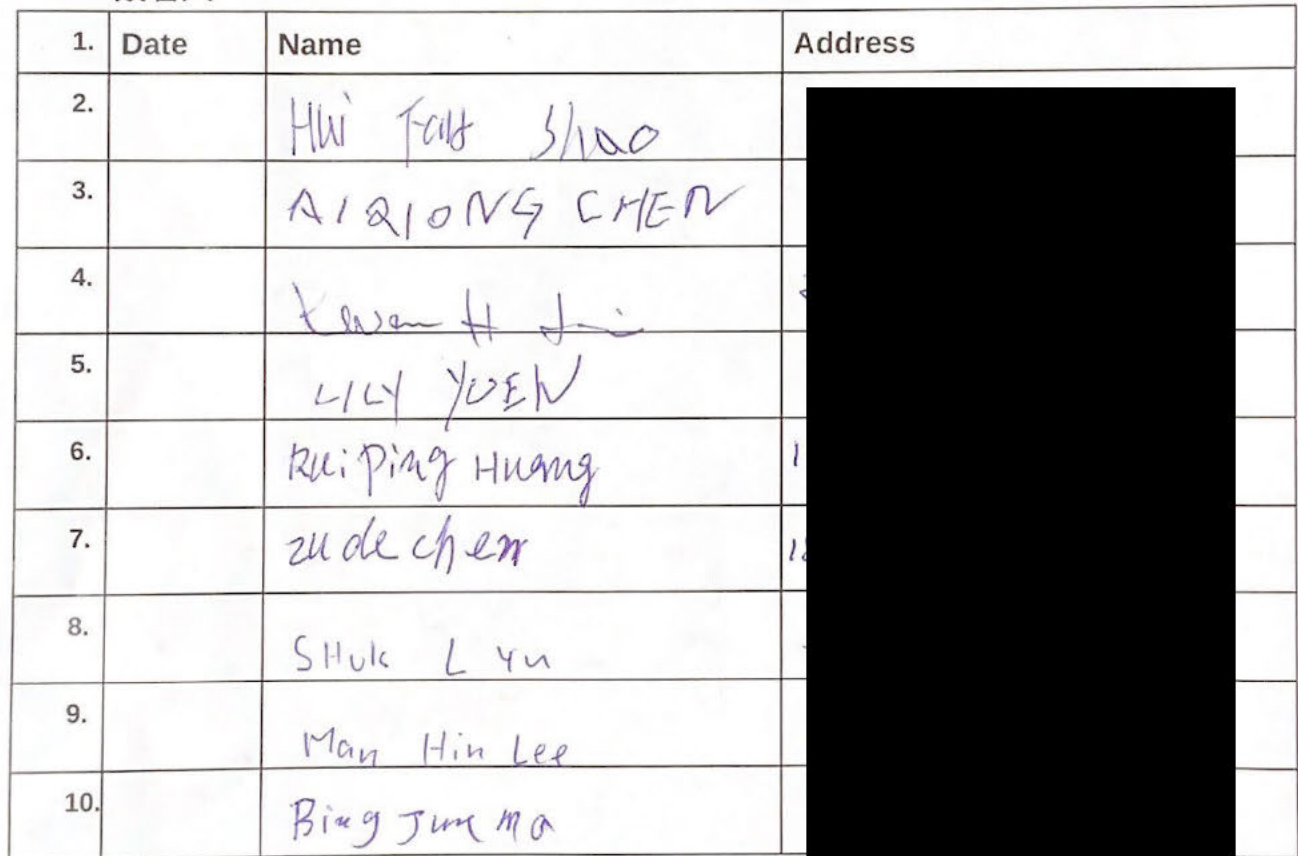 1. Date Name Address
2. Hui Shao
3. AIQIONG CHEN
4. Kwan H
5. LILY YUEN
6. Rui Ping Huang 1
7. zude chen 18
8. SHuk L Yu
9. Man Hin Lee
10. Bing Jun ma